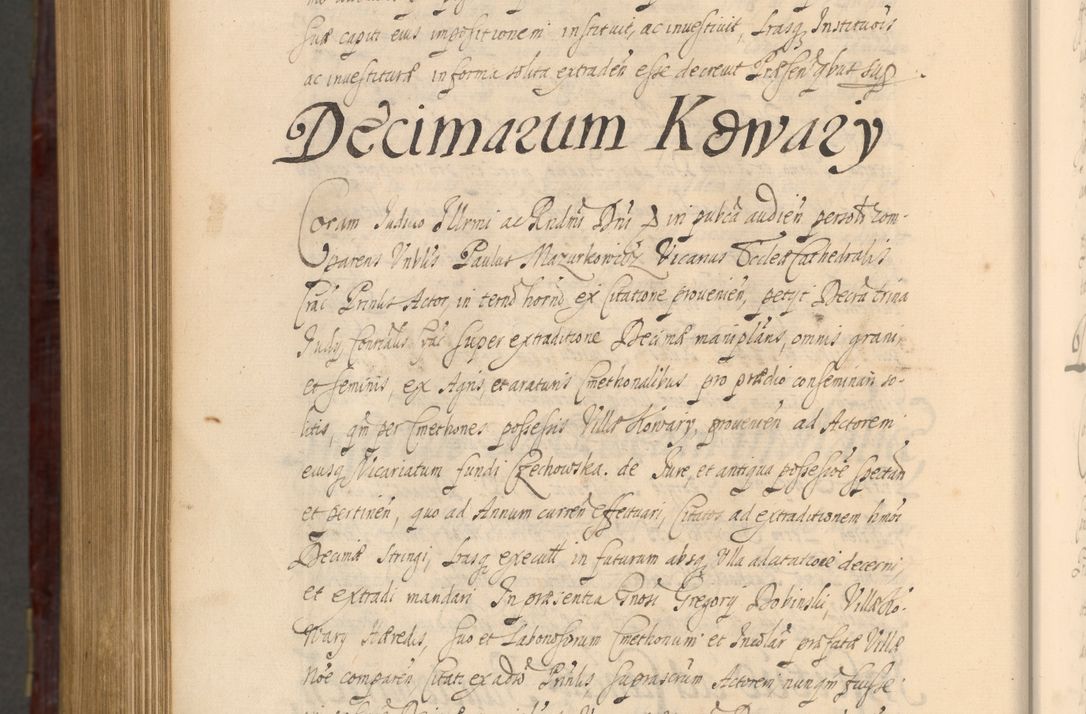 suæ capiti eius impositionem instituit, ac investivit, Lrasq Institutōis
ac investituræ in forma solita extradeñ esse decrevit Præsen̄ qbus sup
Decimarum Kowary
Coram Judicio Illrmi ac Rndmi Dni P in publca audien personlr com-
parens Vnblis Paulus Mazurkowicz Vicarius Ecclea Cathedralis
Crac Prinlis Actor, in term̄o horno ex Citatione provenien, petyt Decra trina
Judy Conrmlis super extraditione Decimæ manipláris, omnis grani,
et seminis, ex Agris, et araturis Cmethonalibus pro prædio conseminari so-
litis, qm per Cmethones possessis Villæ Kowary, provenien ad Actorem
eiusq Vicariatum fundi Czechowska. de Iure, et antiqua possesscōe spectan
et pertinen, quo ad Annum curren̄ effectuari, Citatos ad extraditionem hmōi
Decimæ stringi, Lrasq execult in futurum absq Vlla adcitatione decerni
et extradi mandari In præsentia Gnosi Gregory Dobinski, Villæ Ko-
wary Hæredis, suo et Laboriosorum Cmethonum et Incolar præfatæ Villæ
Nōe comparen, Citati, ex adūo Prinlis suprascrum Actorem nunqm fuisse